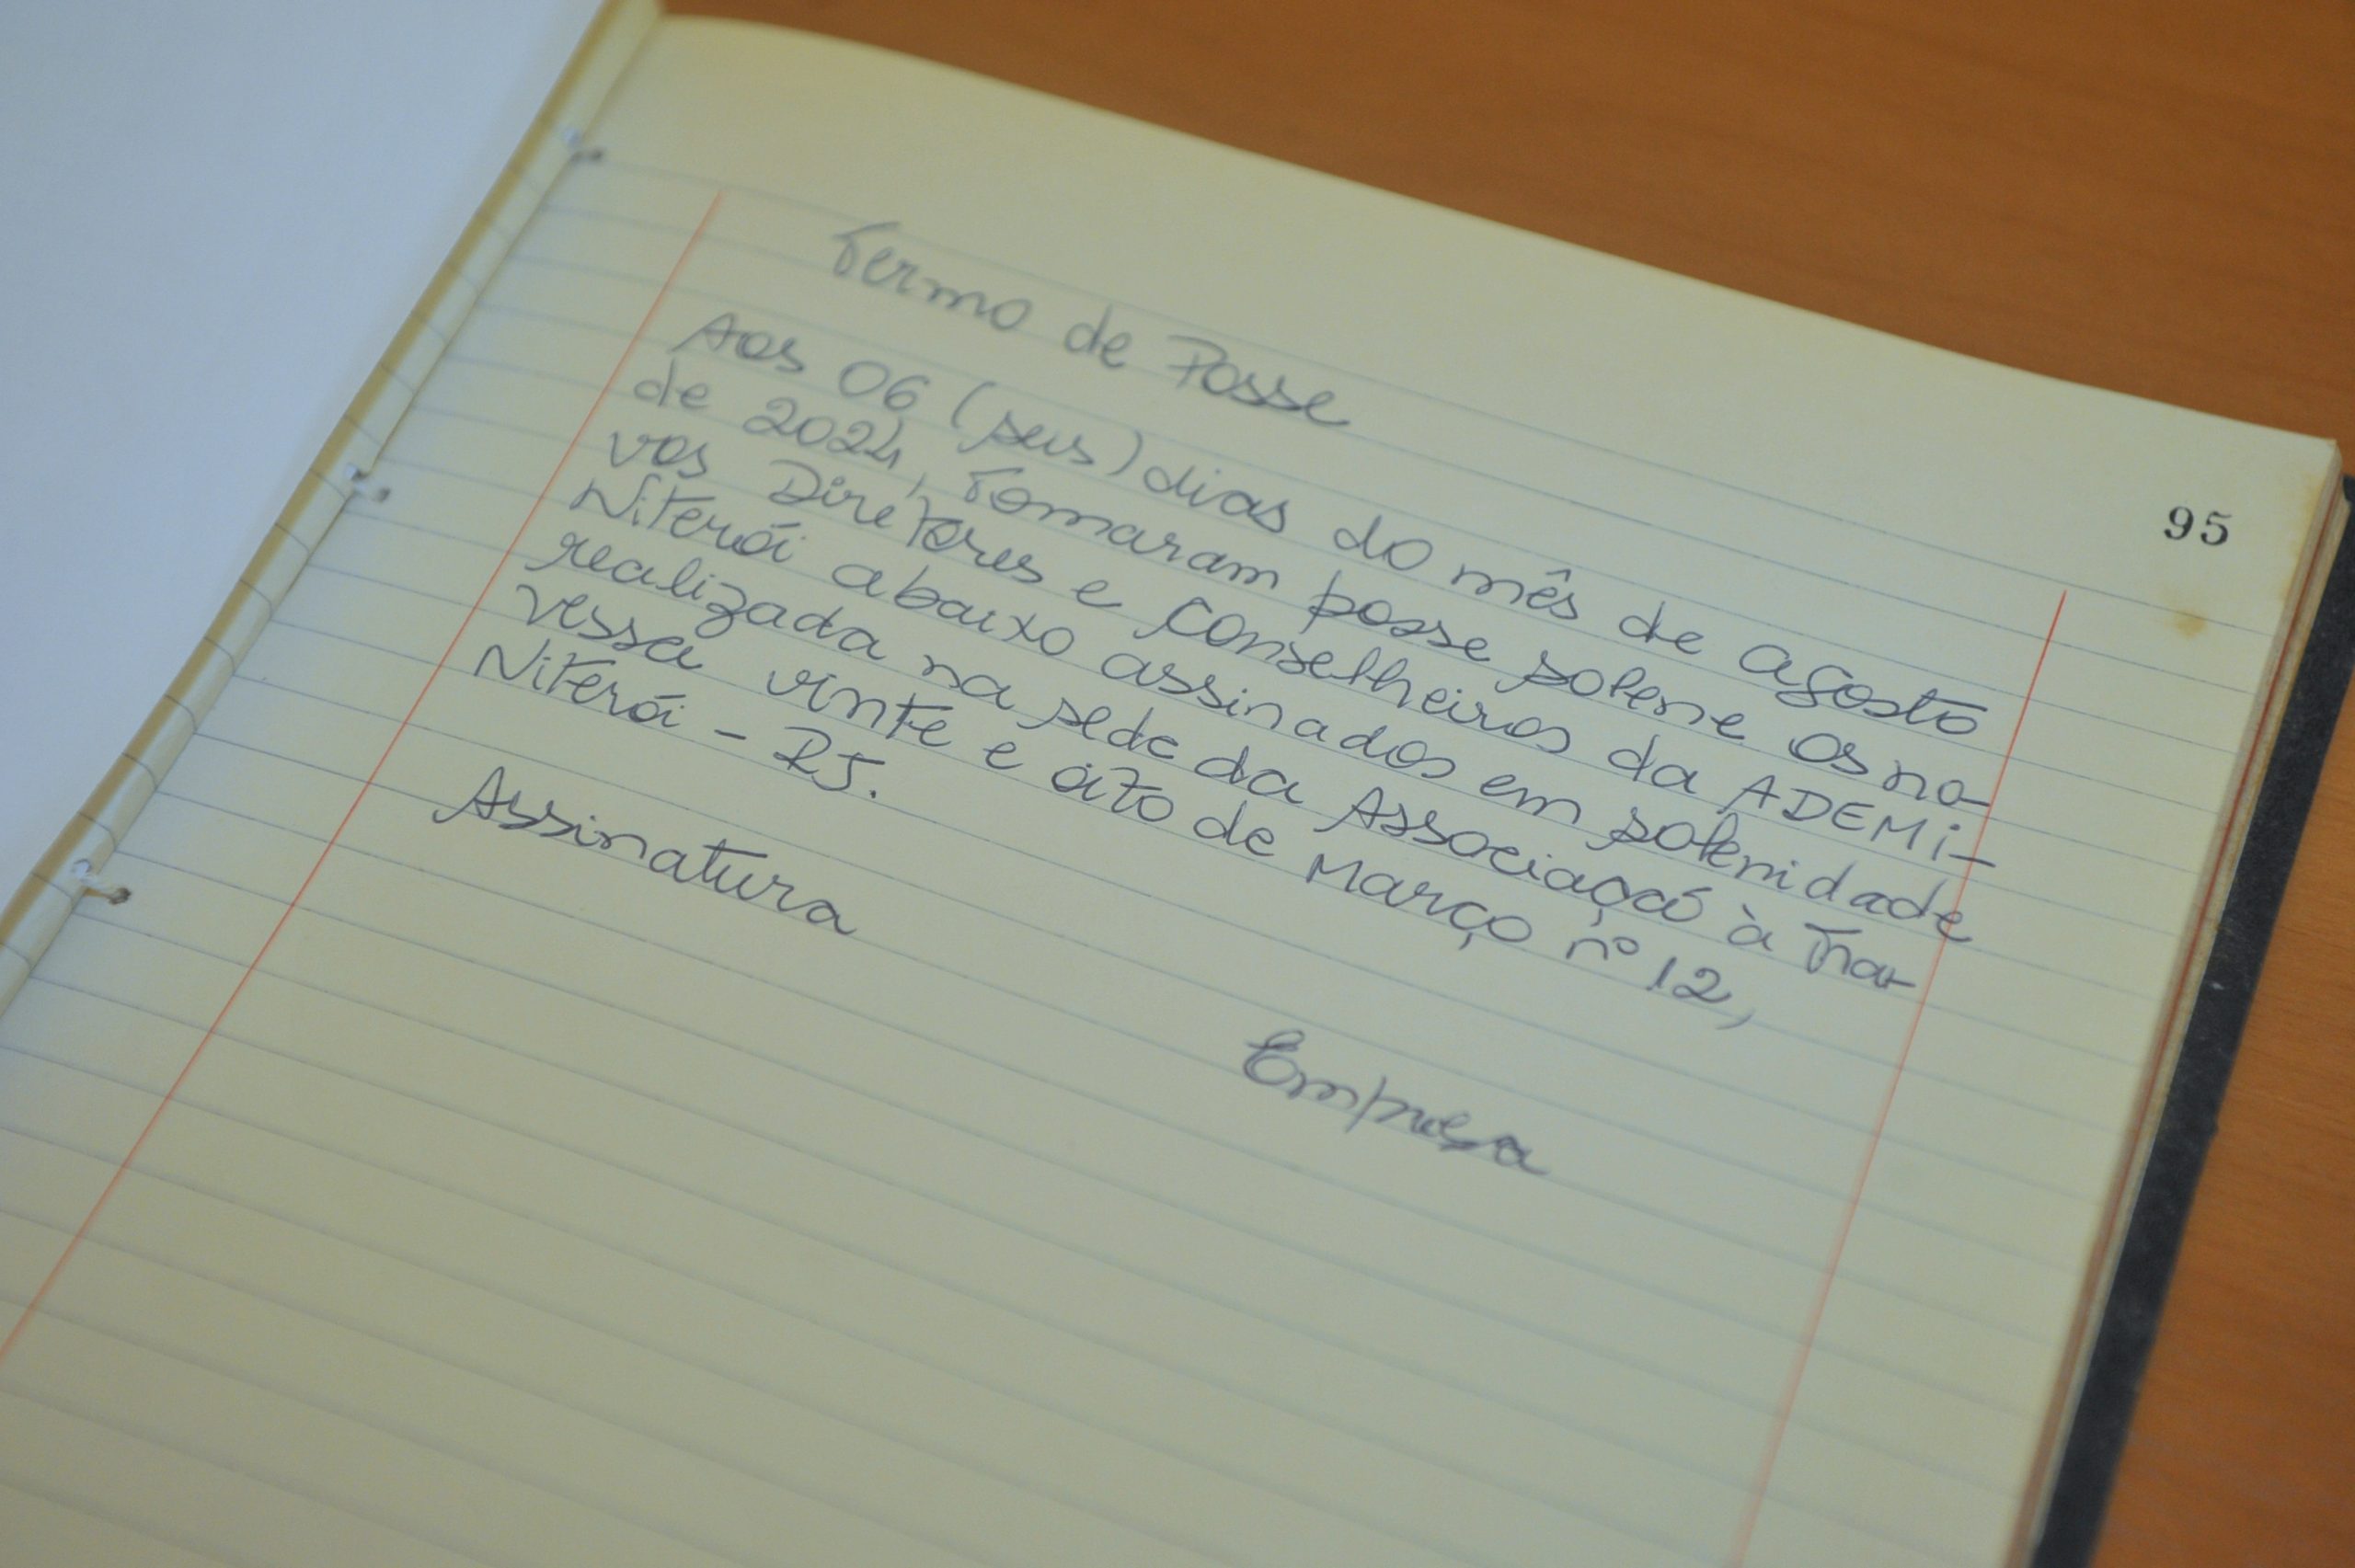 95
Termo de Posse
Aos 06 (seis) dias do mês de agosto
de 2024, Tomaram posse solene os no-
vos Diretores e Conselheiros da ADEMi-
Niterói abaixo assinados em solenidade
realizada na sede da Associação à Tra-
vessa vinte e oito de Março nº 12,
Niterói - RJ.
Assinatura Empresa